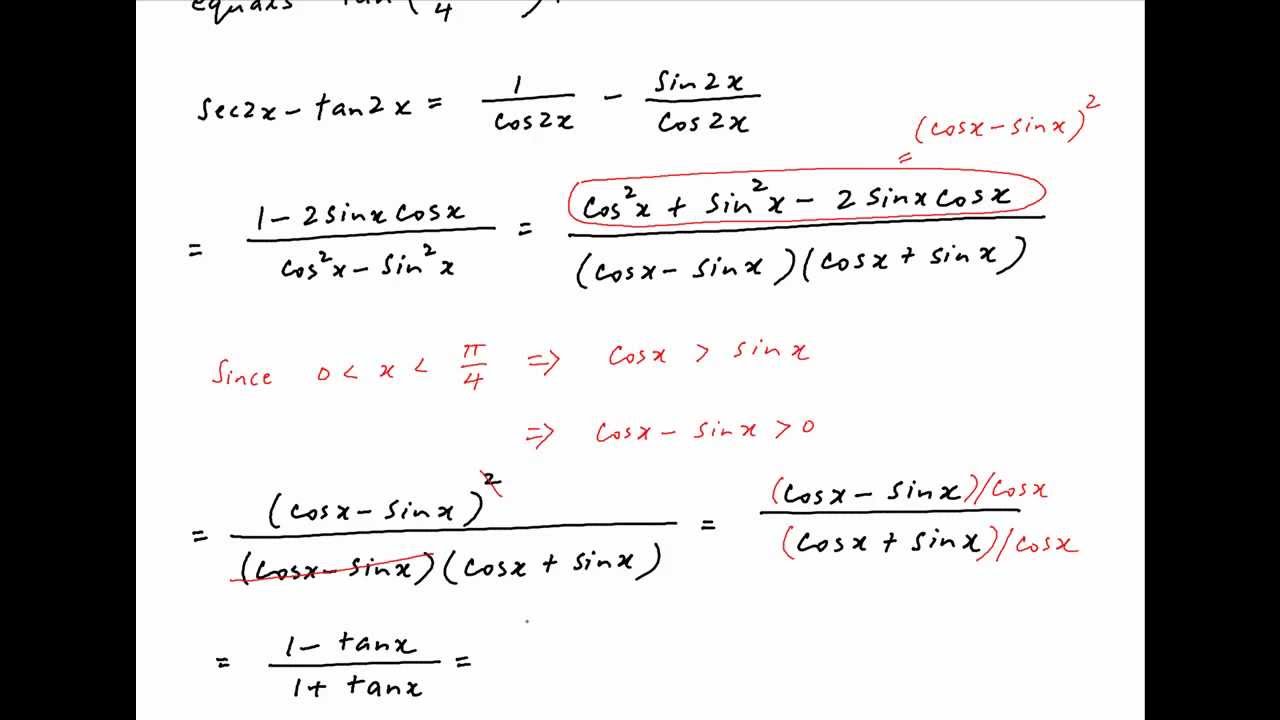 equals tan(π/4
sec2x − tan2x = 1/cos2x − sin2x/cos2x
= (cosx − sinx)²
= (1 − 2sinx cosx)/(cos²x − sin²x) = (cos²x + sin²x − 2 sinx cosx)/((cosx − sinx)(cosx + sinx))
Since 0 < x < π/4 => cosx > sinx
=> cosx − sinx > 0
= (cosx − sinx)²/((cosx − sinx)(cosx + sinx)) = (cosx − sinx)/cosx / (cosx + sinx)/cosx
= (1 − tanx)/(1 + tanx) =